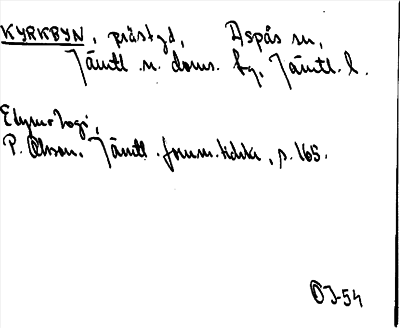 KYRKBYN, prästgd, Aspås sn,
Jämtl. n. doms. fg, Jämtl. l.
Etymologi,
P. Olsson. Jämtl. fornm.tidskr, p. 165.
OJ-54